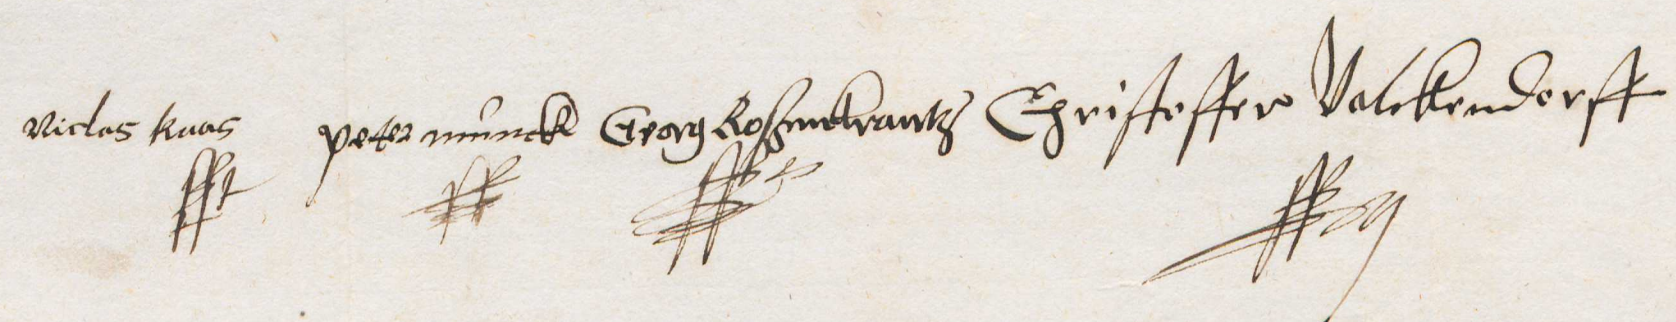 Niclas Kaas Peter Munck Georg Roszenkrantz Christoffer Valckendorff